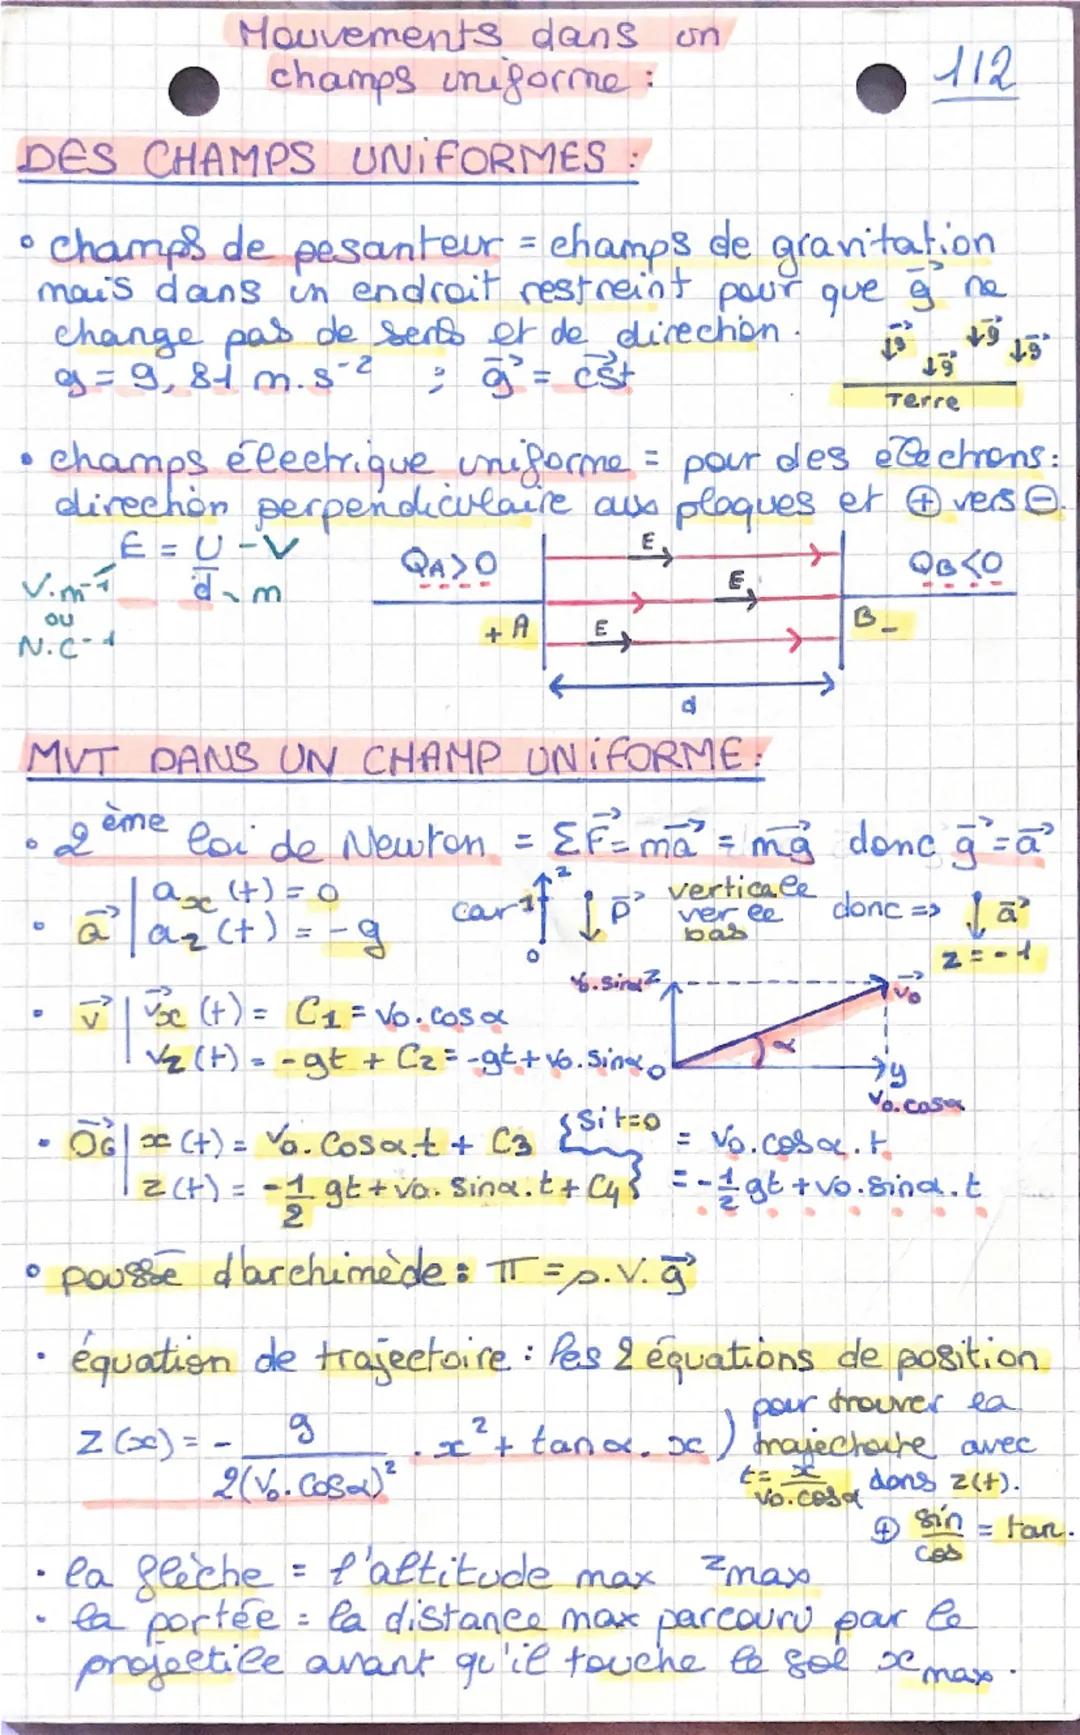 Mouvements dans un
champs uniforme :
112
DES CHAMPS UNIFORMES :
• champs de pesanteur = champs de gravitation
mais dans un endroit restreint pour que g⃗ ne
change pas de sens et de direction.
g = 9,81 m.s⁻² ; g⃗ = cst
↓g⃗ ↓g⃗ ↓g⃗ ↓g⃗
Terre
• champs électrique uniforme = pour des électrons :
direction perpendiculaire aux plaques et ⊕ vers ⊖.
E = U - V
d - m
V.m⁻¹
ou
N.C⁻¹
QA>0
E
E
E
QB<0
+ A
B -
d
MVT DANS UN CHAMP UNIFORME:
• 2ème loi de Newton = ΣF⃗ = ma⃗ = mg⃗ donc g⃗ = a⃗
• a⃗ | ax(t) = 0
az(t) = -g
car z 1 0 ↓ P⃗ verticale
vers le
bas
donc => ↓ a⃗
z = -1
• v⃗ | v⃗x(t) = C1 = v0.cosα
vz(t) = -gt + C2 = -gt + v0.sinα
v0.sinα z
v⃗0
α
0
y
v0.cosα
• OG⃗ | x(t) = v0.cosα.t + C3 { si t=0 = v0.cosα.t
z(t) = -1/2 gt + v0.sinα.t + C4 } = -1/2 gt + v0.sinα.t
• poussé d'archimède : π = ρ.V.g⃗
• équation de trajectoire : les 2 équations de position
pour trouver la
z(x) = - g/2(v0.cosα)² . x² + tanα.x ) trajectoire avec
t = x/v0.cosα dans z(t).
⊕ sin/cos = tan.
• la flèche = l'altitude max zmax
• la portée = la distance max parcouru par le
projectile avant qu'il touche le sol xmax.